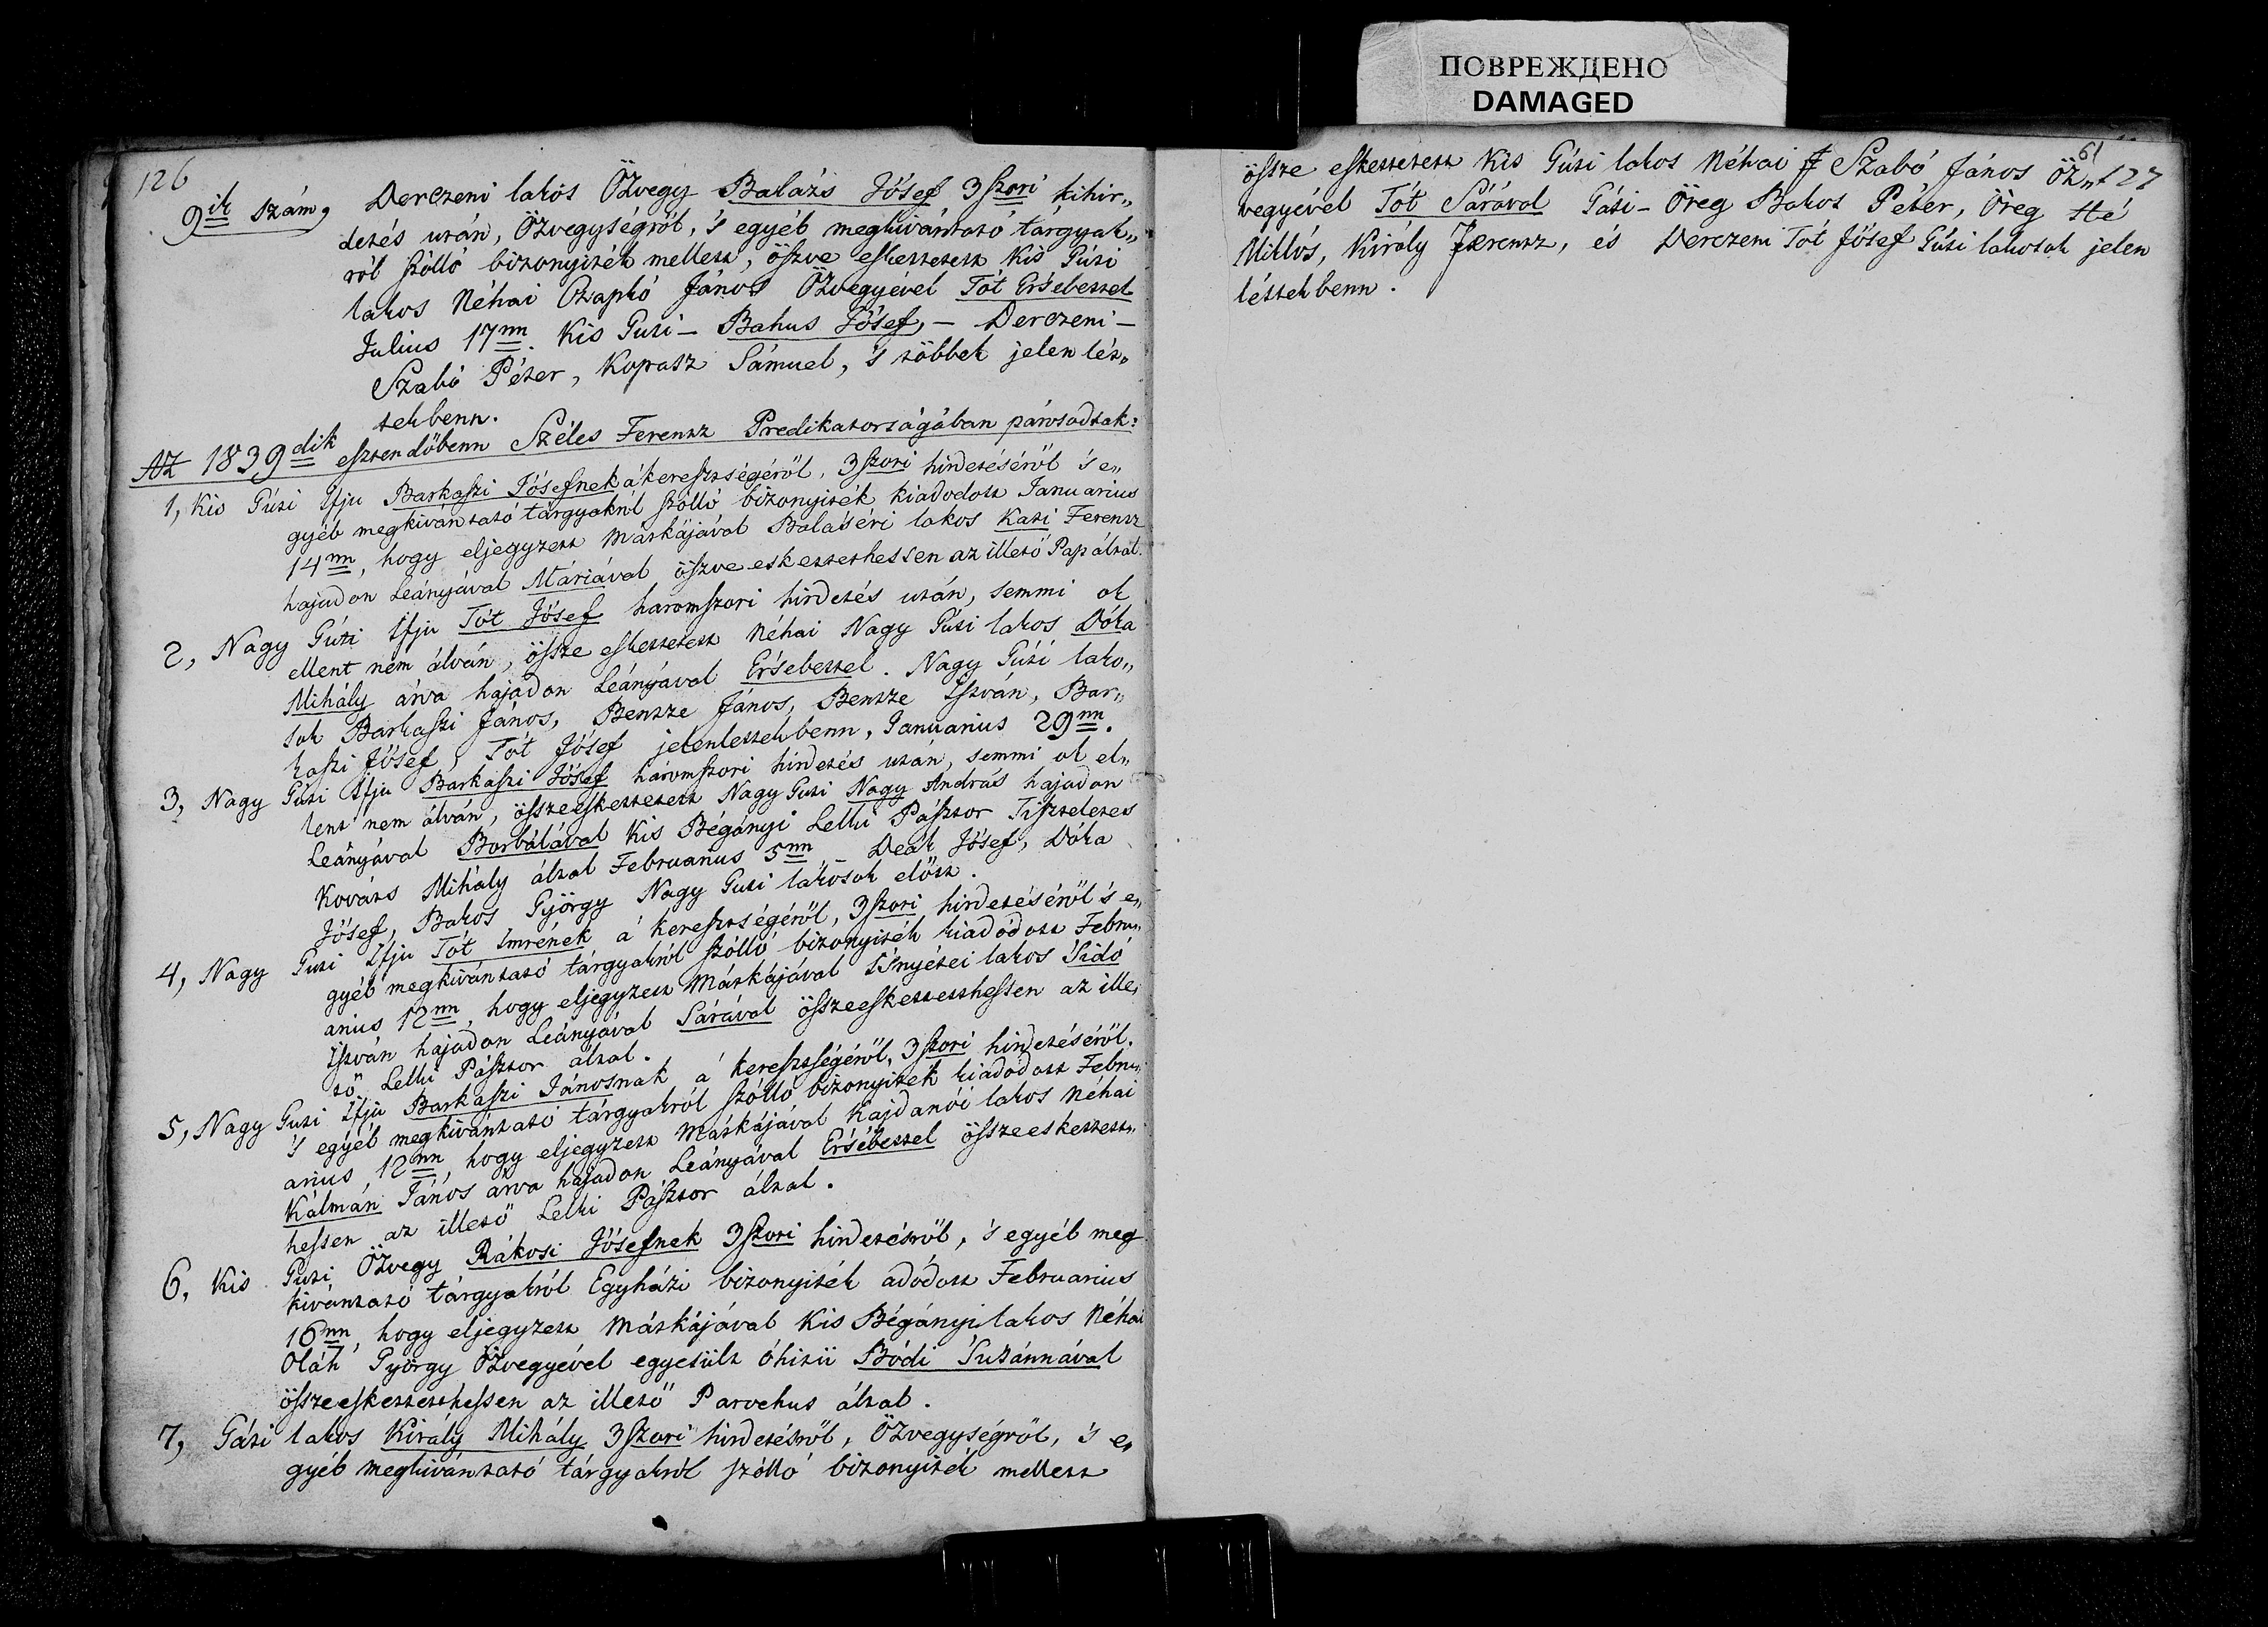 ПОВРЕЖДЕНО
DAMAGED
126
9ik szám, Derczeni lakos Özvegy Balázs Jósef 3szori kihir„
detés után, Özvegységről, 's egyéb megkivántató tárgyak„
ról szólló bizonyiték mellett, öszve eskettetett Kis Gúti
lakos Néhai Czapkó János Özvegyével Tót Ersebettel
Julius 17nn. Kis Guti – Bakus Jósef, – Derczeni –
Szabó Péter, Kopasz Sámuel, 's többek jelen lét„
tekbenn.
Az 1839dik esztendőbenn Széles Ferentz Predikatorságában párosodtak:
1, Kis Gúti Ifju Barkaszi Jósefnek á keresztségéről, 3szori hirdetéséről 's e„
gyéb megkivántató tárgyakról szólló bizonyiték kiadódott Januarius
14nn, hogy eljegyzett Mátkájával Balaséri lakos Kati Ferentz
hajadon Leányával Máriával öszve eskettethessen az illető Pap által.
2, Nagy Gúti Ifju Tót Jósef haromszori hirdetés után, semmi ok
ellent nem álván, össze eskettetett Néhai Nagy Gúti lakos Dóka
Mihály árva hajadon Leányával Ersebettel. Nagy Gúti lako„
sok Barkaszi János, Bentze János, Bentze István, Bar„
kaszi Jósef, Tót Jósef jelenlettekbenn, Januarius 29nn.
3, Nagy Gúti Ifju Barkaszi Jósef háromszori hirdetés után, semmi ok el„
lent nem álván, összeeskettetett Nagy Guti Nagy András hajadon
Leányával Borbálával Kis Bégányi Lelki Pásztor Tiszteletes
Kováts Mihály által Februarius 5nn – Deák Jósef, Dóka
Jósef, Bakos György Nagy Guti lakosok előtt.
4, Nagy Guti Ifju Tót Imrének á keresztségéről, 3szori hirdetéséről 's e„
gyéb megkivántató tárgyakról szólló bizonyiték kiadódott Febru„
arius 12nn, hogy eljegyzett Mátkájával lakos Sidó
István hajadon Leányával Sárával összeeskettetthessen az ille„
tő Lelki Pásztor által.
5, Nagy Guti Ifju Barkaszi Jánosnak á keresztségéről, 3szori hirdetéséről,
's egyéb megkivántató tárgyakról szólló bizonyiték kiadódott Febru„
arius 12nn, hogy eljegyzett Mátkájával Kajdanói lakos Néhai
Kálmán János árva hajadon Leányával Ersébettel összeeskettett„
hessen az illető Lelki Pásztor által.
6, Kis Guti Özvegy Rákosi Jósefnek 3szori hirdetésről, 's egyéb meg
kivántató tárgyakról Egyházi bizonyiték adódott Februarius
16nn, hogy eljegyzett Mátkájával Kis Bégányi lakos Néhai
Oláh György Özvegyével egyesült óhitü Bódi Susánnával
összeeskettetthessen az illető Parochus által.
7, Gáti lakos Király Mihály 3szori hirdetésről, Özvegységről, 's e„
gyéb megkivántató tárgyakról szólló bizonyiték mellett
61
127
össze eskettetett Kis Gúti lakos Néhai Szabó János Öz„
vegyével Tót Sárával Gáti – Öreg Bakos Péter, Öreg Hé
Miklós, Király Ferentz, és Derczeni Tót Jósef Gúti lakosok jelen
léttekbenn.